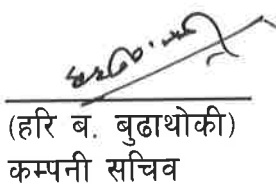 (हरि ब. बुढाथोकी)
कम्पनी सचिव